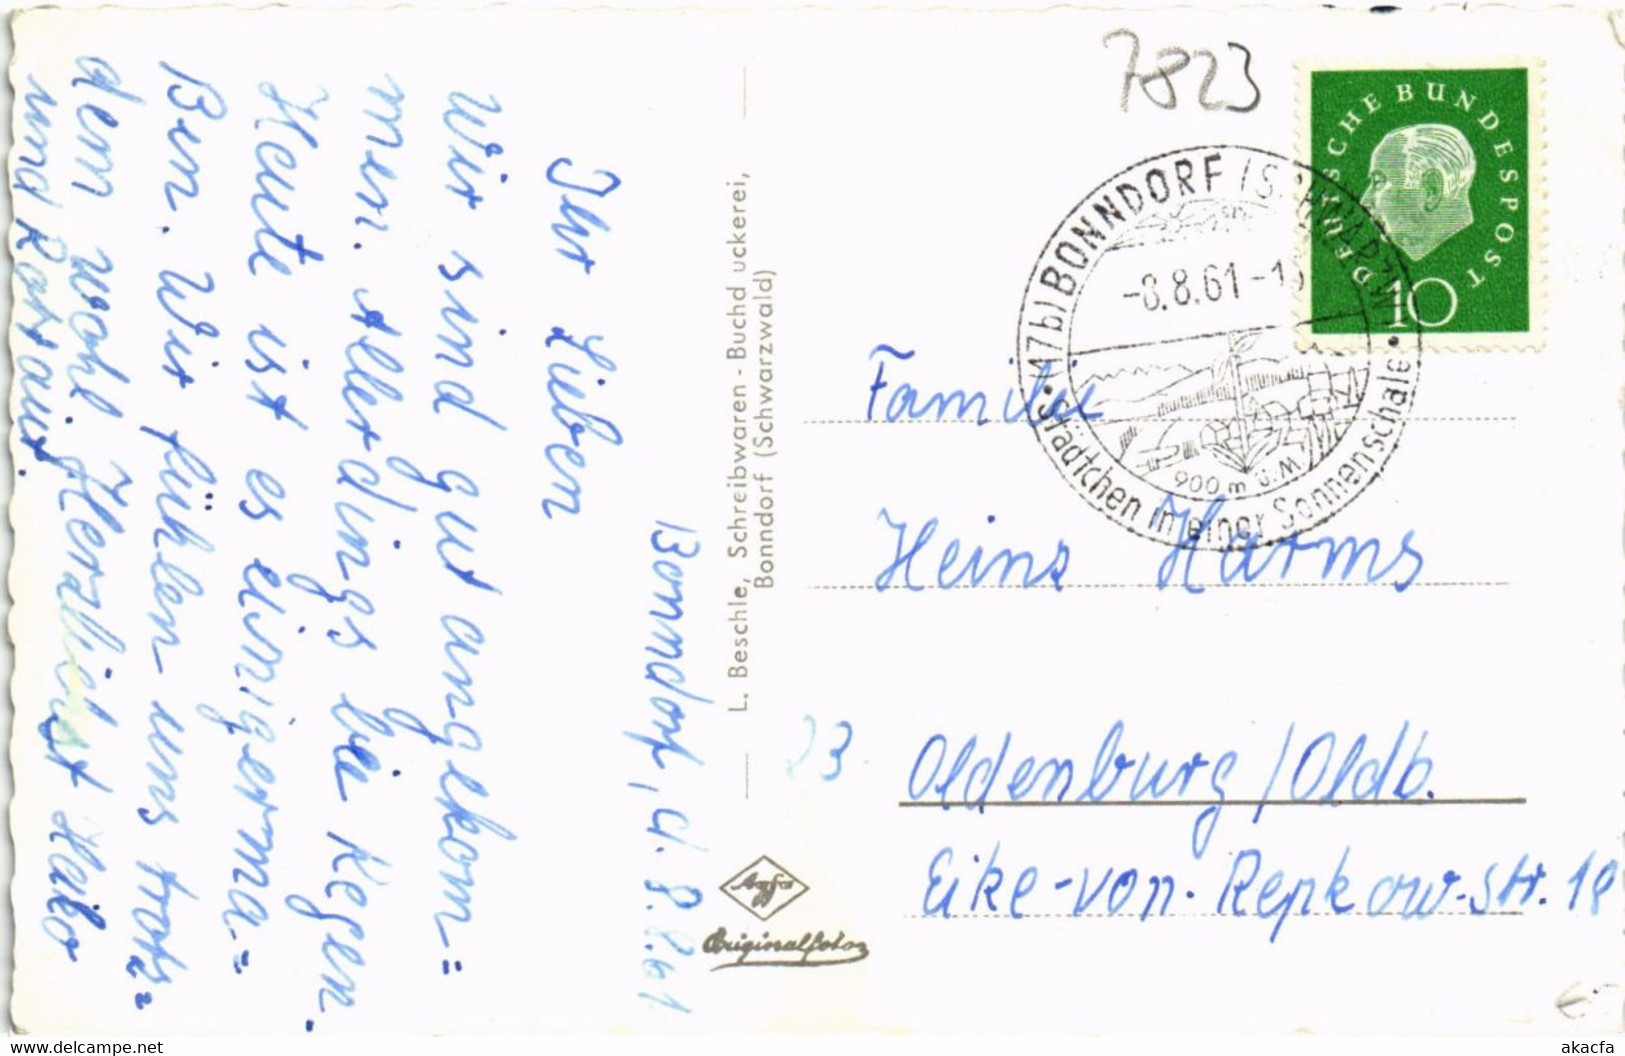 7823
DEUTSCHE BUNDESPOST
10
(17b) BONNDORF (SCHWARZW)
-8.8.61-1
900 m ü.M.
Städtchen in einer Sonnenschale
Bonndorf, 4.8.61
Ihr Lieben
Wir sind gut angekom=
men. Allerdings bei Regen.
Heute ist es einigerma=
ßen. Wir fühlen uns trotz=
dem wohl. Herzlichst
und
L. Beschle, Schreibwaren - Buchd uckerei,
Bonndorf (Schwarzwald)
Agfa
Originalfoto
23
Familie
Heinz Harms
Oldenburg/Oldb.
Eike-von-Repkow-Str. 18
akacfa